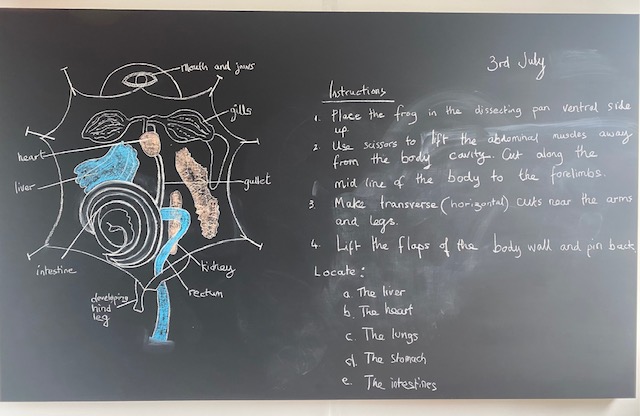 mouth and jaws
gills
heart
liver
gullet
intestine
kidney
rectum
developing
hind
leg
3rd July
Instructions
1. Place the frog in the dissecting pan ventral side
up.
2. Use scissors to lift the abdominal muscles away
from the body cavity. Cut along the
mid line of the body to the forelimbs.
3. Make transverse (horizontal) cuts near the arms
and legs.
4. Lift the flaps of the body wall and pin back
Locate:
a. The liver
b. The heart
c. The lungs
d. The stomach
e. The intestines